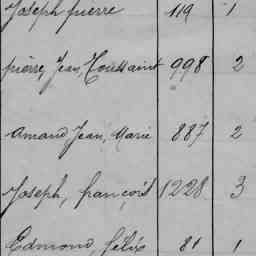 Joseph pierre 119 1
pierre, Jean, Toussaint 998 2
Amand Jean, Marie 887 2
Joseph, françois 1228 3
Edmond, félix 81 1